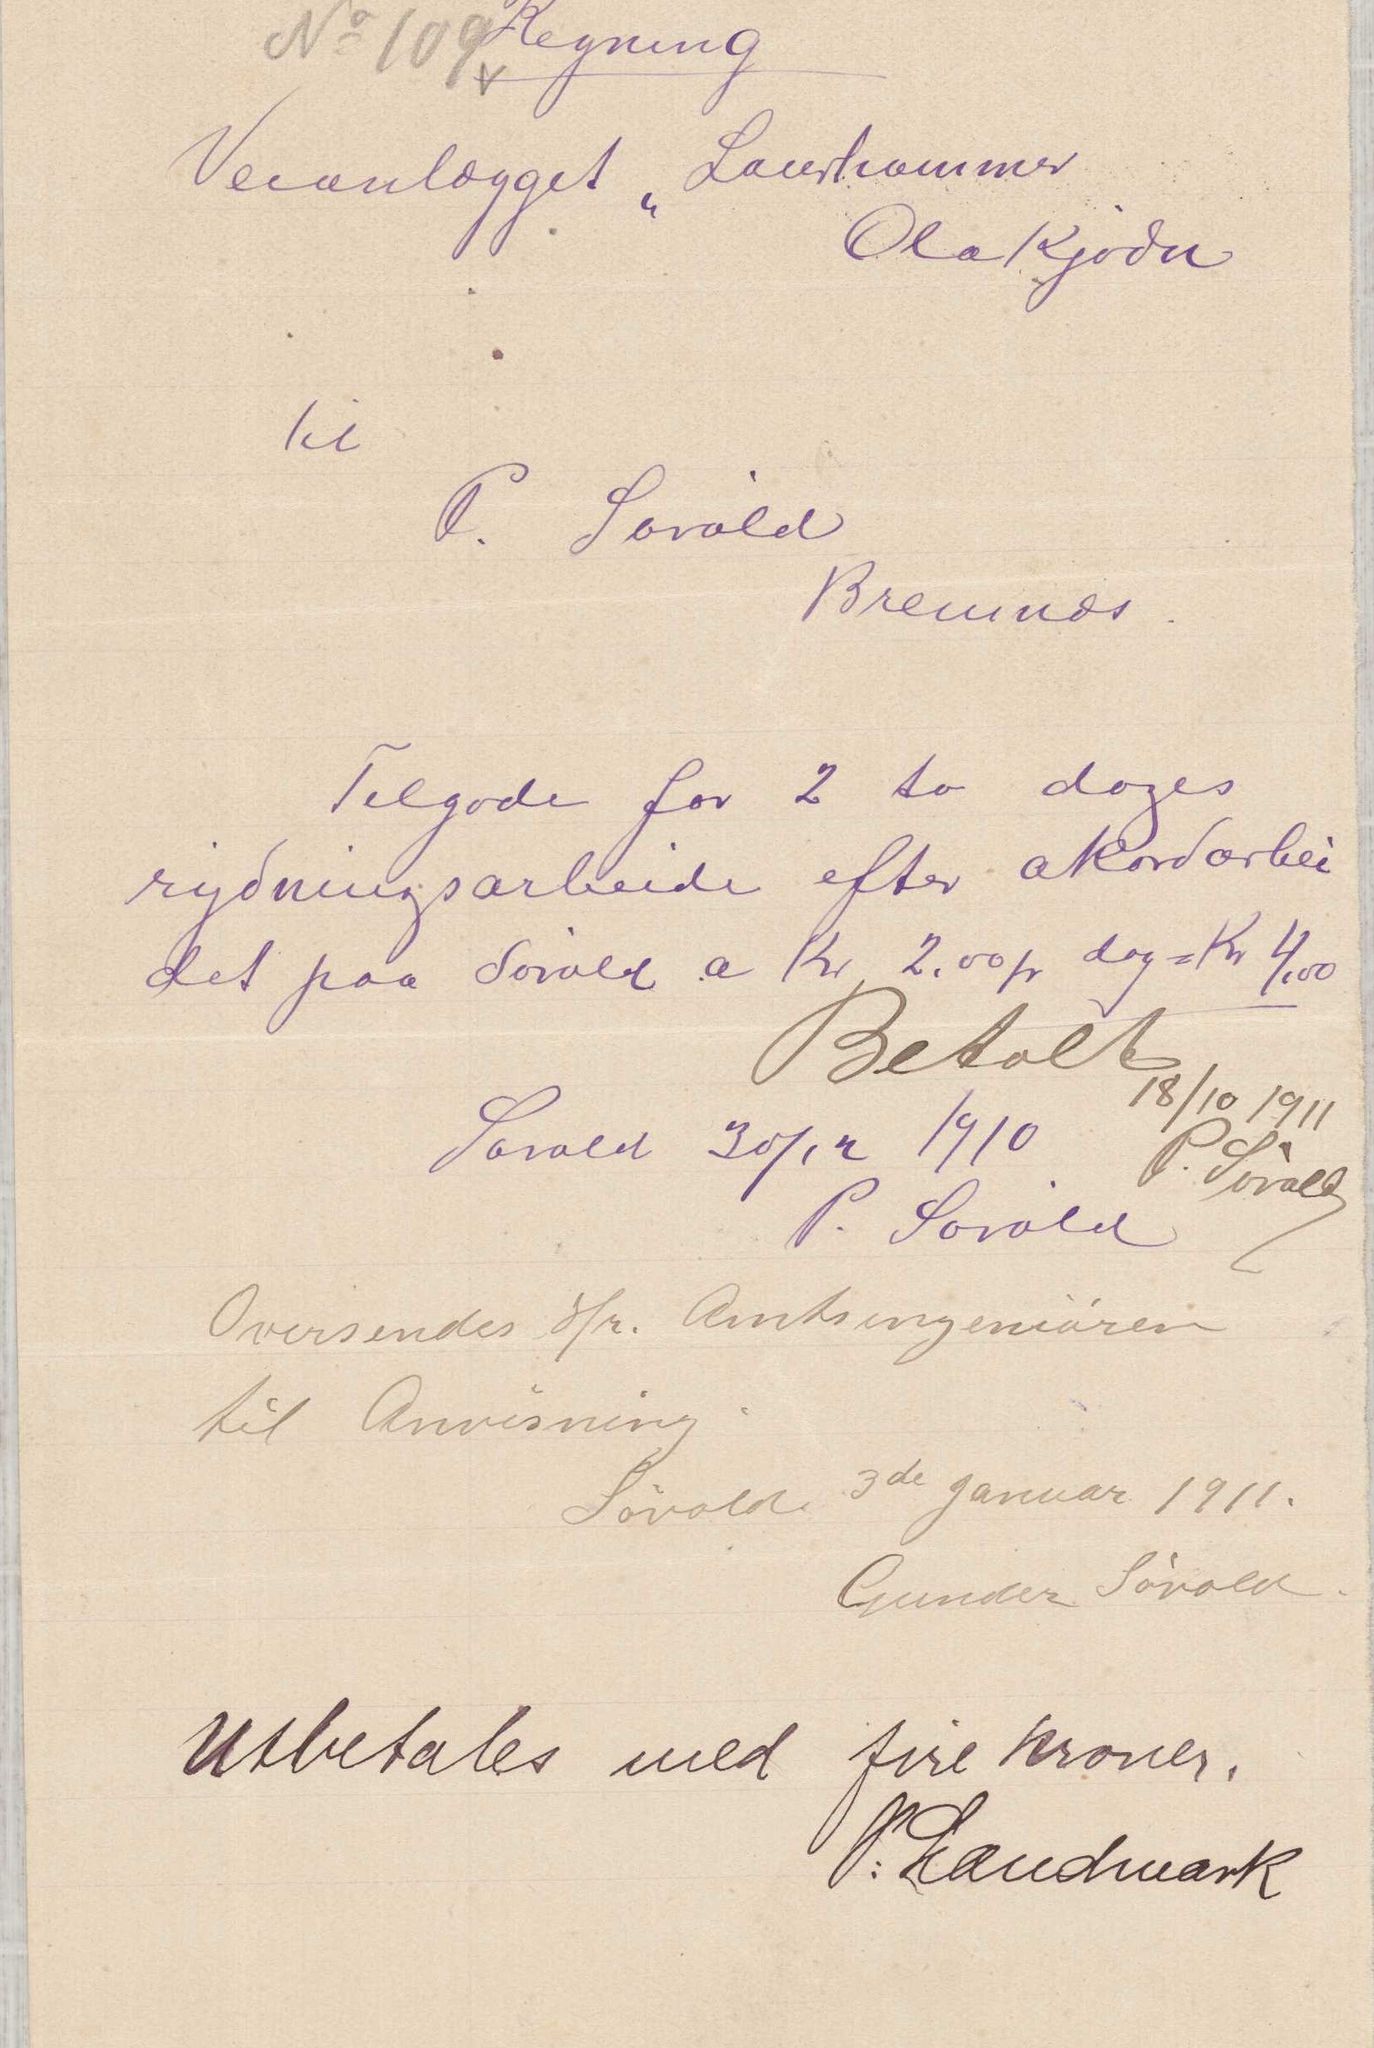 No 109
Regning
Veianlægget „Laurhammer
Ola Kjödn
til
P. Søvold
Bremnæs.
Tilgode for 2 to dages
rydningsarbeide efter akkordarbei
det paa Søvold a Kr 2.00 pr dag = Kr 4,00
Betalt
18/10 1911
P. Søvold
Søvold 30/12 1910
P. Søvold
Oversendes Hr. Amtsingeniören
til Anvisning.
Søvold 3de Januar 1911.
Gunder Søvold.
Utbetales med fire kroner.
P. Landmark